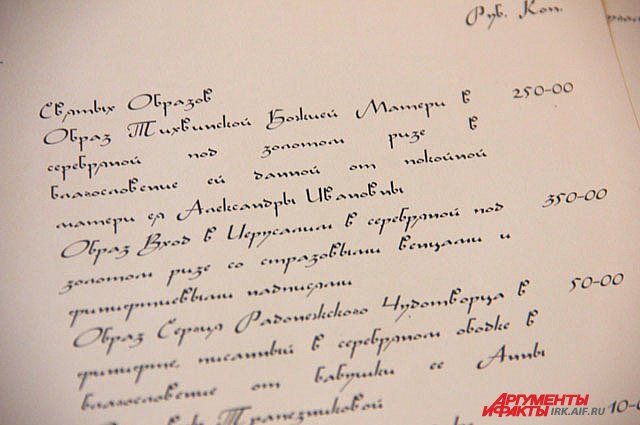 Руб. Коп.
Святых Образов
Образ Тихвинской Божией Матери в 250-00
серебряной под золотом ризе в
благословение ей данной от покойной
матери ея Александры Ивановны
Образ Вход в Иерусалим в серебряной под 350-00
золотом ризе со стразовыми венцами и
финифтиевыми надписями
Образ Сергия Радонежского Чудотворца в 50-00
финифте, писанный в серебряном ободке в
благословение от бабушки ее Анны
Трапезниковой
АРГУМЕНТЫ
И ФАКТЫ IRK.AIF.RU